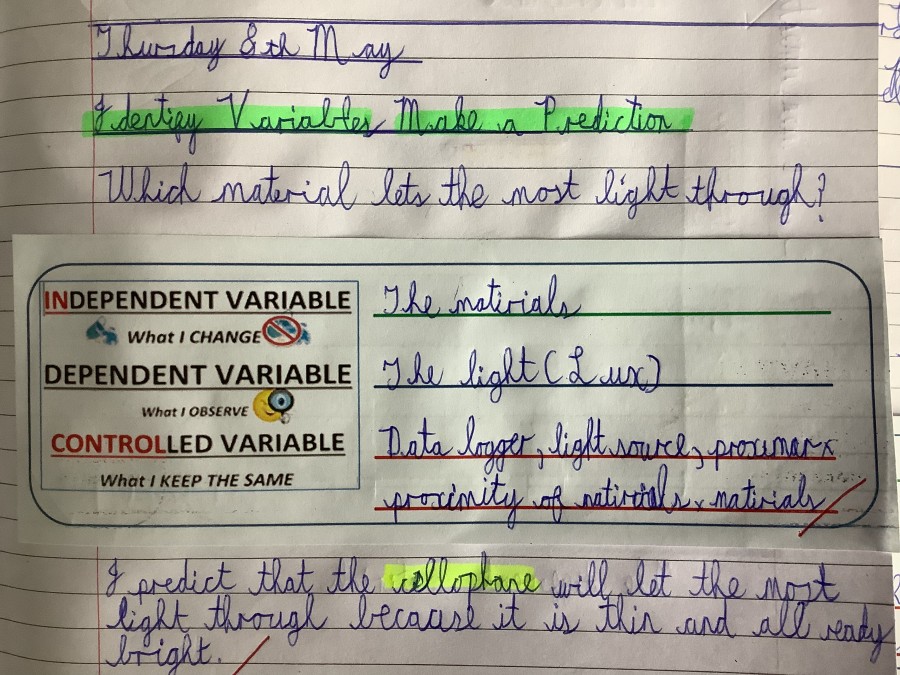 Thursday 8th May
Identify Variables Make a Prediction
Which material lets the most light through?
INDEPENDENT VARIABLE
What I CHANGE
The materials
DEPENDENT VARIABLE
What I OBSERVE
The light (Lux)
CONTROLLED VARIABLE
What I KEEP THE SAME
Data logger, light source, proximar x
proximity of matirials x materials
I predict that the cellophane will let the most
light through because it is thin and all ready
bright.